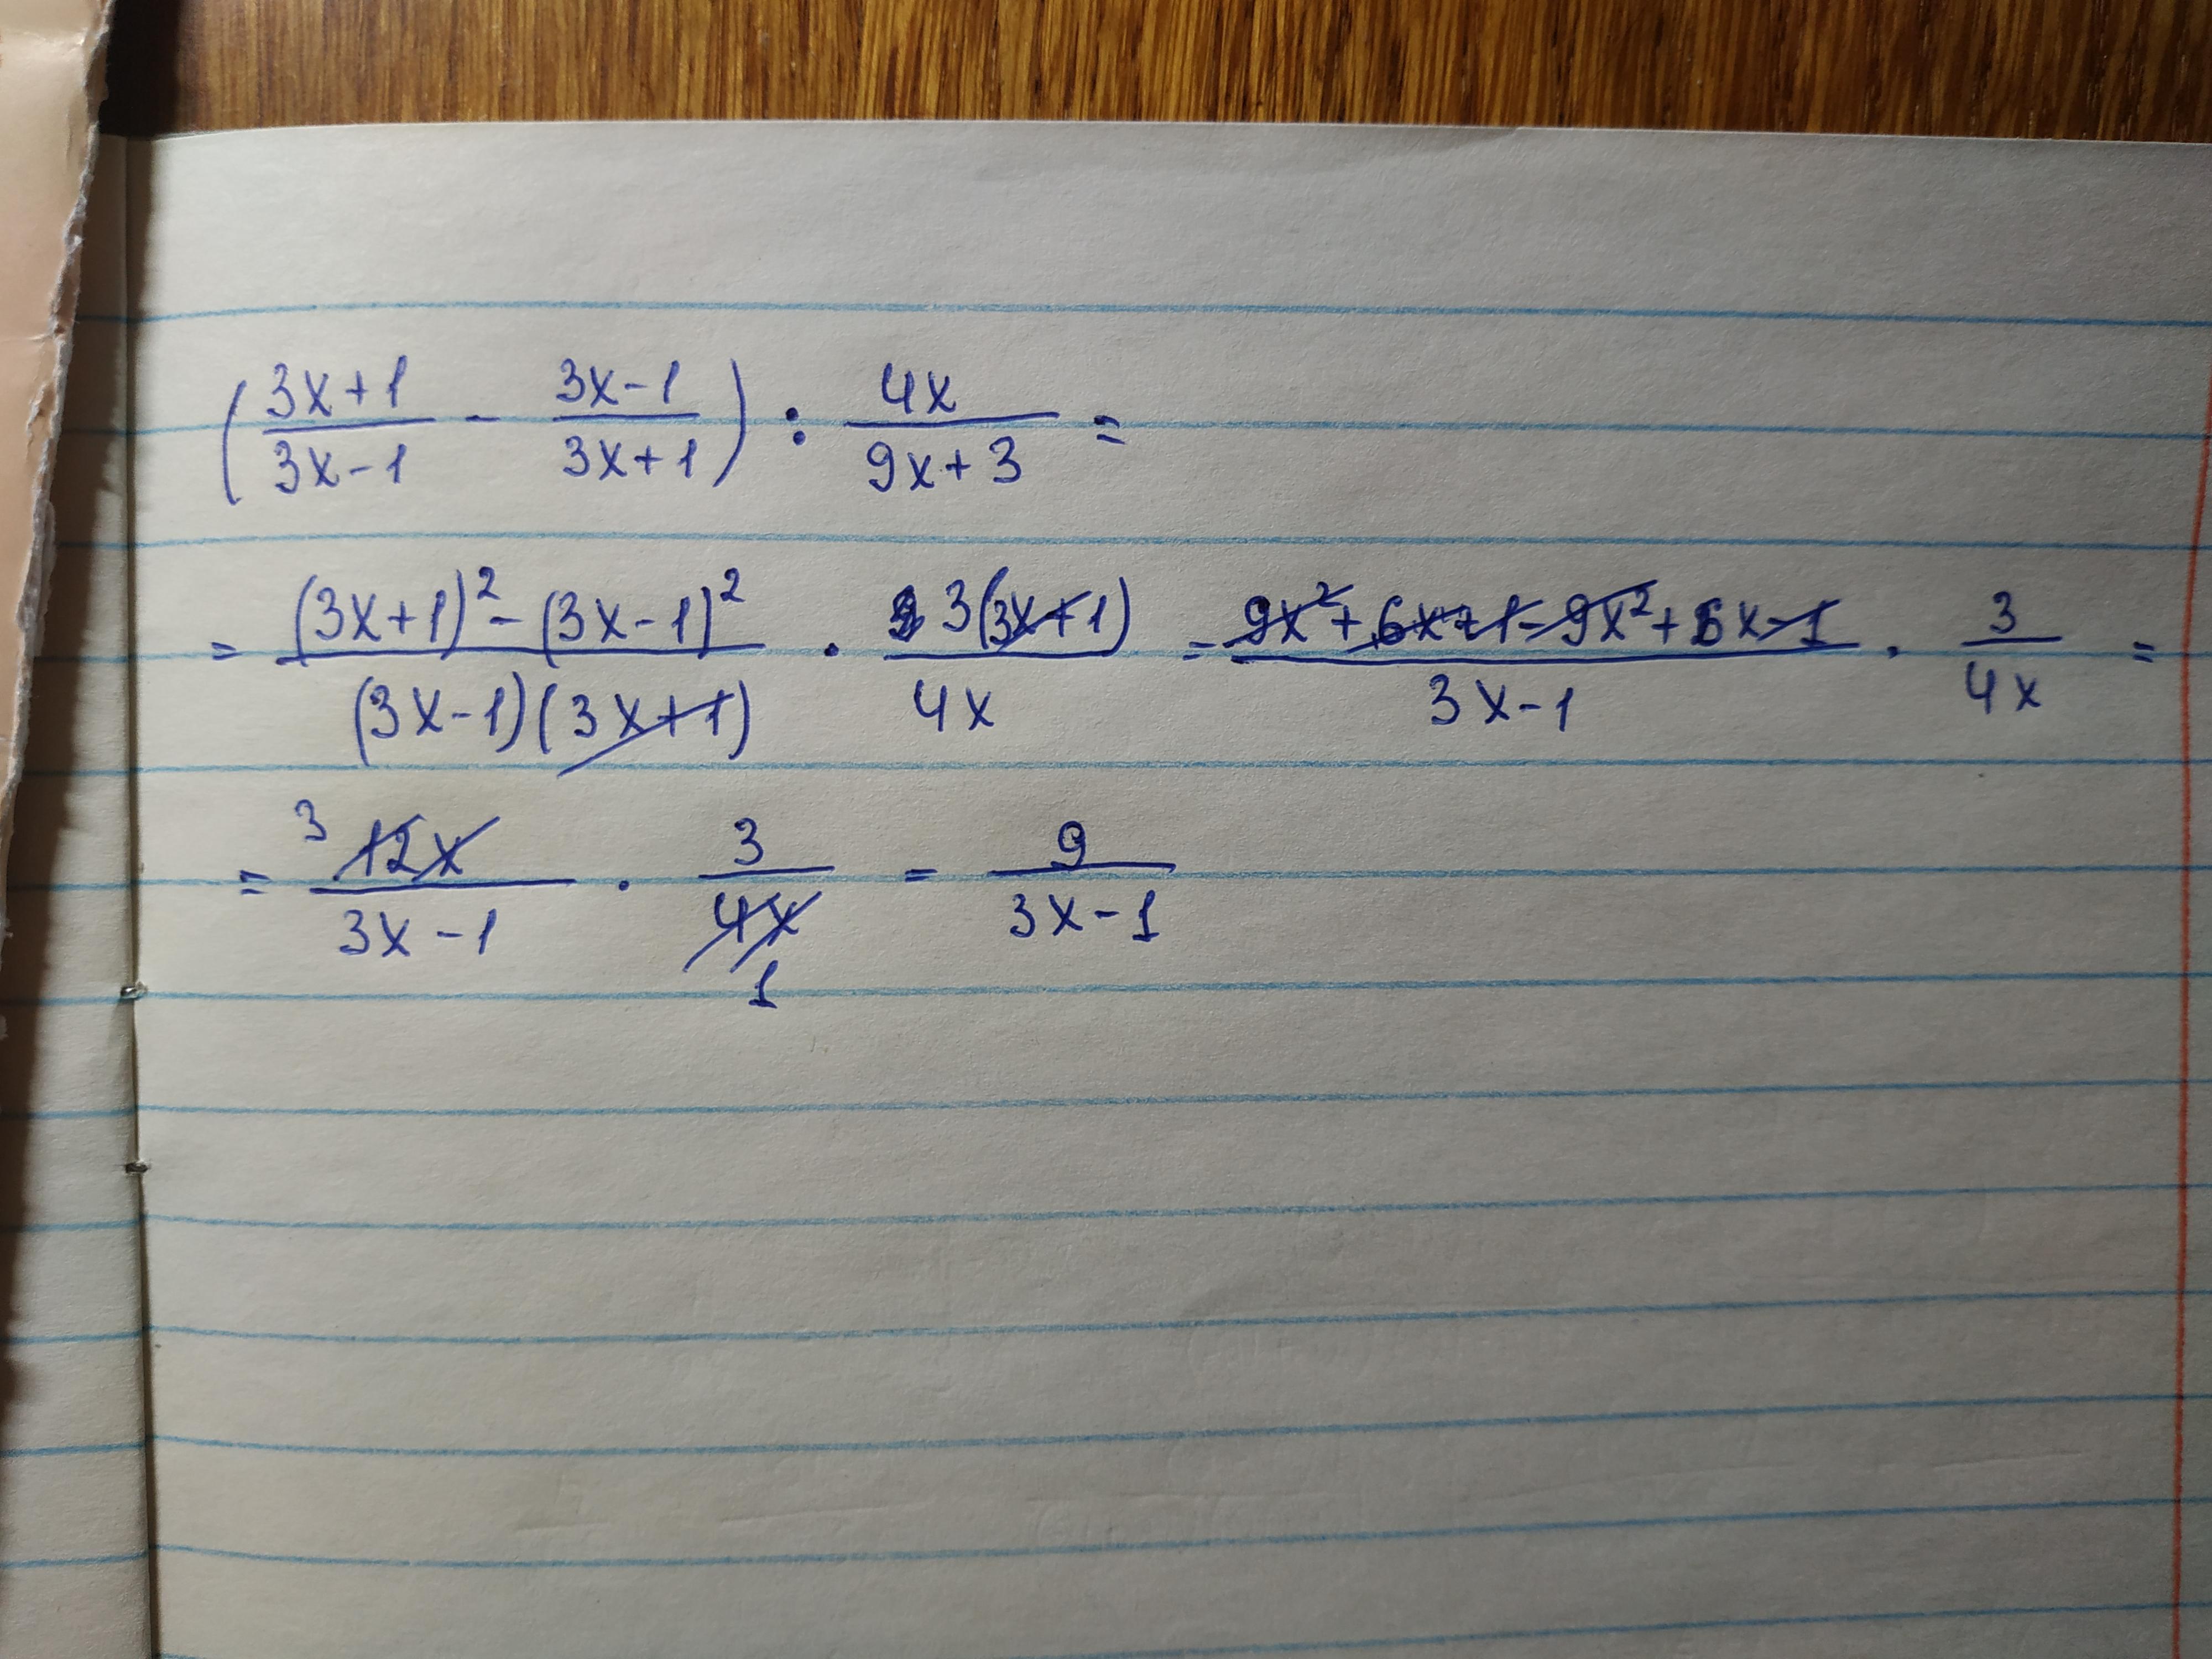 (\frac{3x+1}{3x-1} - \frac{3x-1}{3x+1}) : \frac{4x}{9x+3} =
= \frac{(3x+1)^2-(3x-1)^2}{(3x-1)(3x+1)} \cdot \frac{3(3x+1)}{4x} = \frac{9x^2+6x+1-9x^2+6x-1}{3x-1} \cdot \frac{3}{4x} =
= \frac{^3 12x}{3x-1} \cdot \frac{3}{4x_1} = \frac{9}{3x-1}